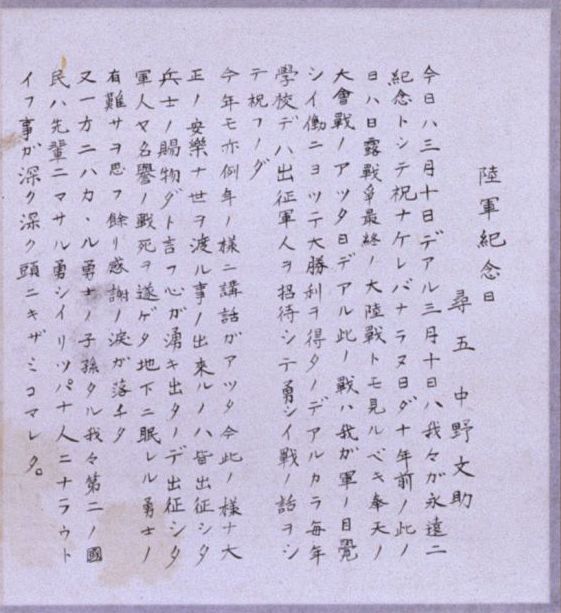 陸軍紀念日
尋五 中野文助
今日ハ三月十日デアル三月十日ハ我々ガ永遠ニ
紀念トシテ祝ナケレバナラヌ日ダ十年前ノ此ノ
日ハ日露戰爭最終ノ大陸戰トモ見ルベキ奉天ノ
大會戰ノアツタ日デアル此ノ戰ハ我ガ軍ノ目覺
シイ働ニヨツテ大勝利ヲ得タノデアルカラ毎年
學校デハ出征軍人ヲ招待シテ勇シイ戰ノ話ヲシ
テ祝フノダ
今年モ亦例年ノ樣ニ講話ガアツタ今此ノ樣ナ大
正ノ安樂ナ世ヲ渡ル事ノ出來ルノハ皆出征シタ
兵士ノ賜物ダト言フ心ガ湧キ出タノデ出征シタ
軍人ヤ名譽ノ戰死ヲ遂ゲタ地下ニ眠レル勇士ノ
有難サヲ思フ餘リ感謝ノ淚ガ落チタ
又一方ニハカヽル勇士ノ子孫タル我々第二ノ國
民ハ先輩ニマサル勇シイリツパナ人ニナラウト
イフ事ガ深ク深ク頭ニキザミコマレタ。